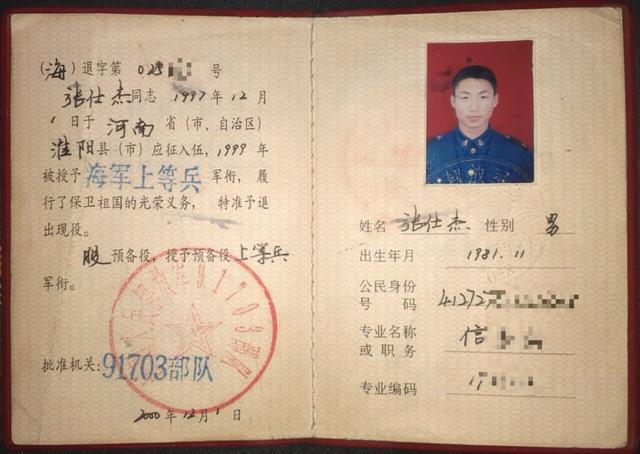 （海）退字第 025 号
张仕杰同志1997年12月
1日于河南省（市、自治区）
淮阳县（市）应征入伍，1999年
被授予海军上等兵军衔，履
行了保卫祖国的光荣义务，特准予退
出现役。
服预备役，授予预备役上等兵
军衔。
批准机关：91703部队
2000年12月1日
91703部队
姓名 张仕杰 性别 男
出生年月 1981.11
公民身份
号码 412727
专业名称 信
或职务
专业编码 17